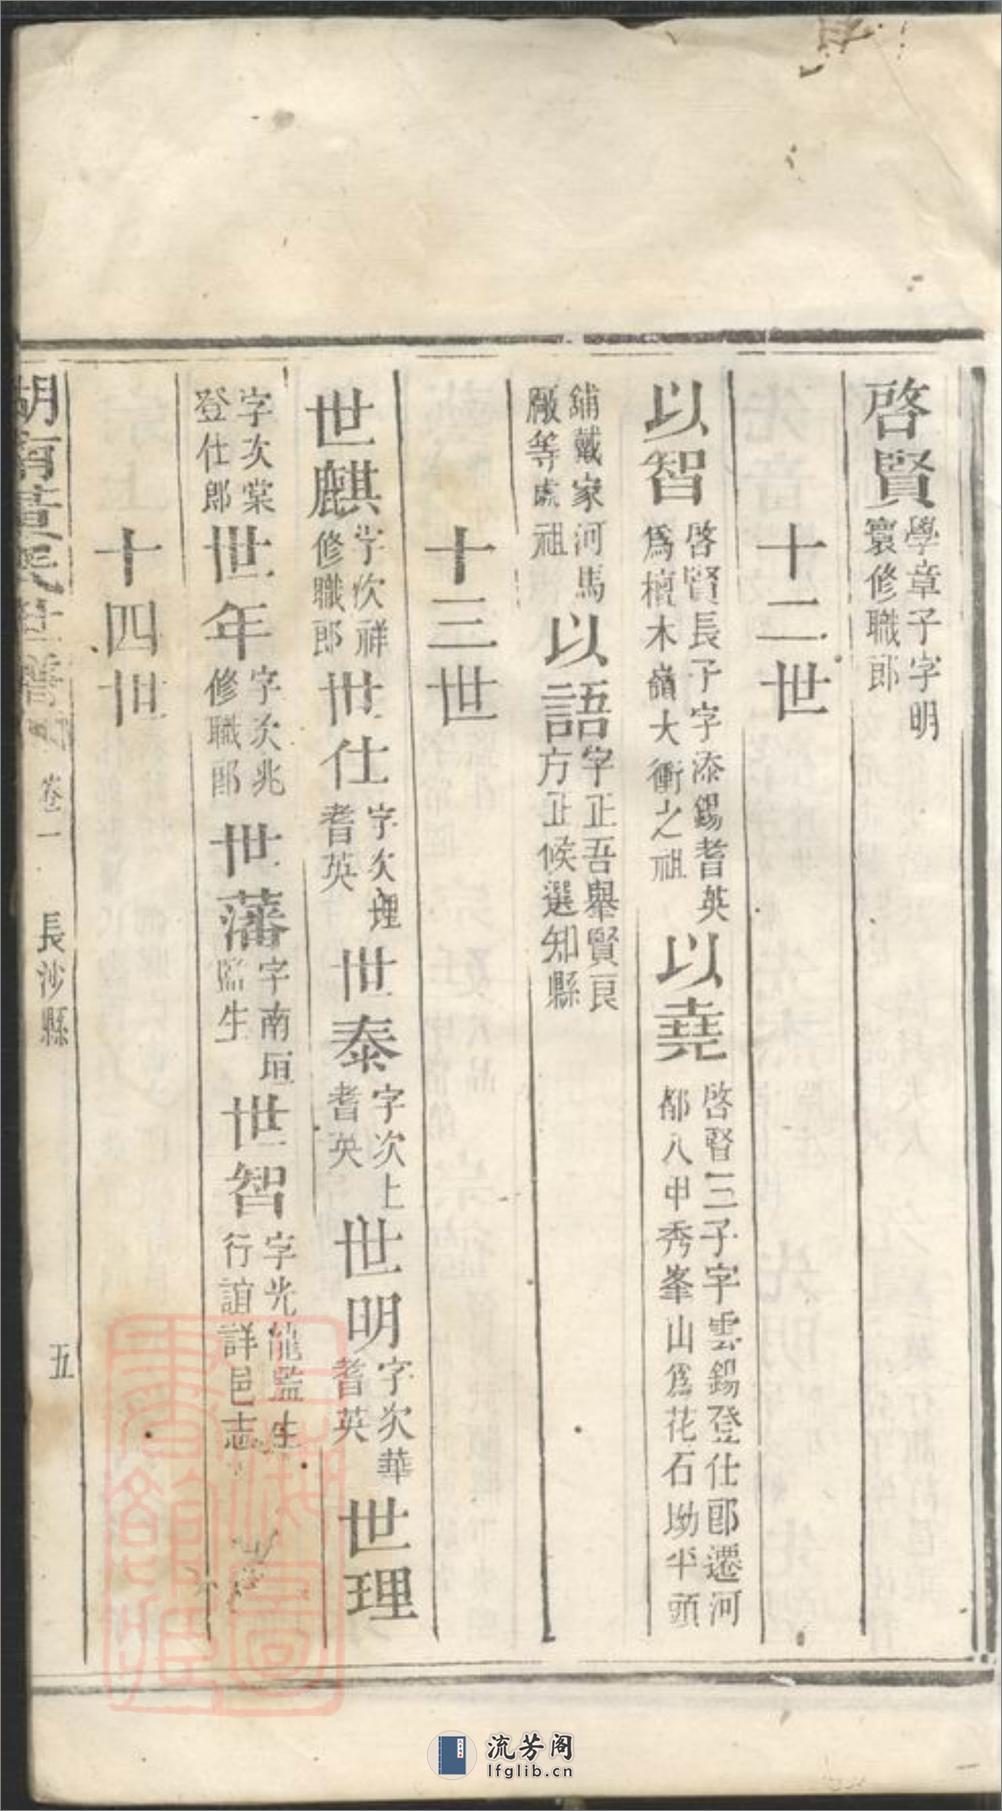 啓賢學章子字明
寰修職郎
十二世
以智啓賢長子字添錫耆英
爲檀木嶺大衝之祖
以堯啓賢三子字雲錫登仕郎遷河
都八甲秀峯山爲花石坳平頭
鋪戴家河馬
廠等處祖
以語字正吾舉賢良
方正候選知縣
十三世
世麒字次祥
修職郎
世仕字次理
耆英
世泰字次上
耆英
世明字次華
耆英
世理
字次棠
登仕郎
世年字次兆
修職郎
世藩字南垣
監生
世智字光龍監生
行誼詳邑志
十四世
湖南黃氏世譜 卷一 長沙縣 五
上海圖書館藏
流芳阁
lfglib.cn